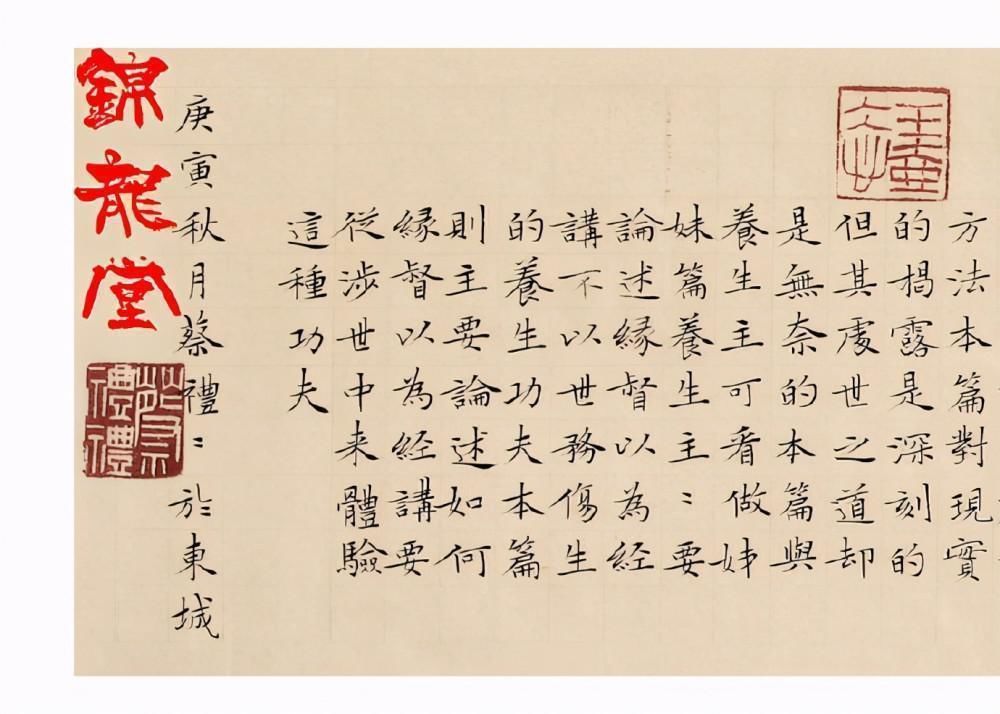 方法本篇對現實
的揭露是深刻的
但其處世之道却
是無奈的本篇與
養生主可看做姊
妹篇養生主〻要
論述縁督以為經
講不以世務傷生
的養生功夫本篇
則主要論述如何
縁督以為經講要
從涉世中来體驗
這種功夫
庚寅秋月蔡禮〻於東城
錦龍堂
蔡禮禮